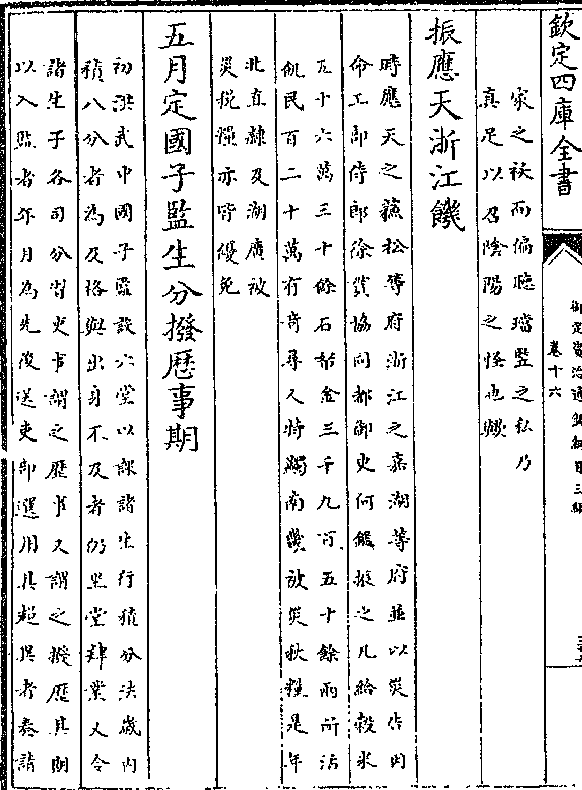 欽定四庫全書
御定資治通鑑綱目三編
卷十六
家之祅而偏聽璫豎之私乃
真足以召陰陽之怪也歟
振應天浙江饑
時應天之蘇松等府浙江之嘉湖等府並以災告内
命工部侍郎徐貫協同都御史何鑑振之凡給榖米
五十六萬三十餘石幣金三千九百五十餘兩所活
飢民百二十萬有奇尋又特蠲南畿被災秋糧是年
北直隸及湖廣被
災税糧亦皆優免
五月定國子監生分撥歴事期
初洪武中國子監設六堂以課諸生行積分法歲内
積八分者為及格與出身不及者仍坐堂肄業又令
諸生于各司分習吏事謂之歴事又謂之撥歴其期
以入監者年月為先後送吏部選用其超異者奏請